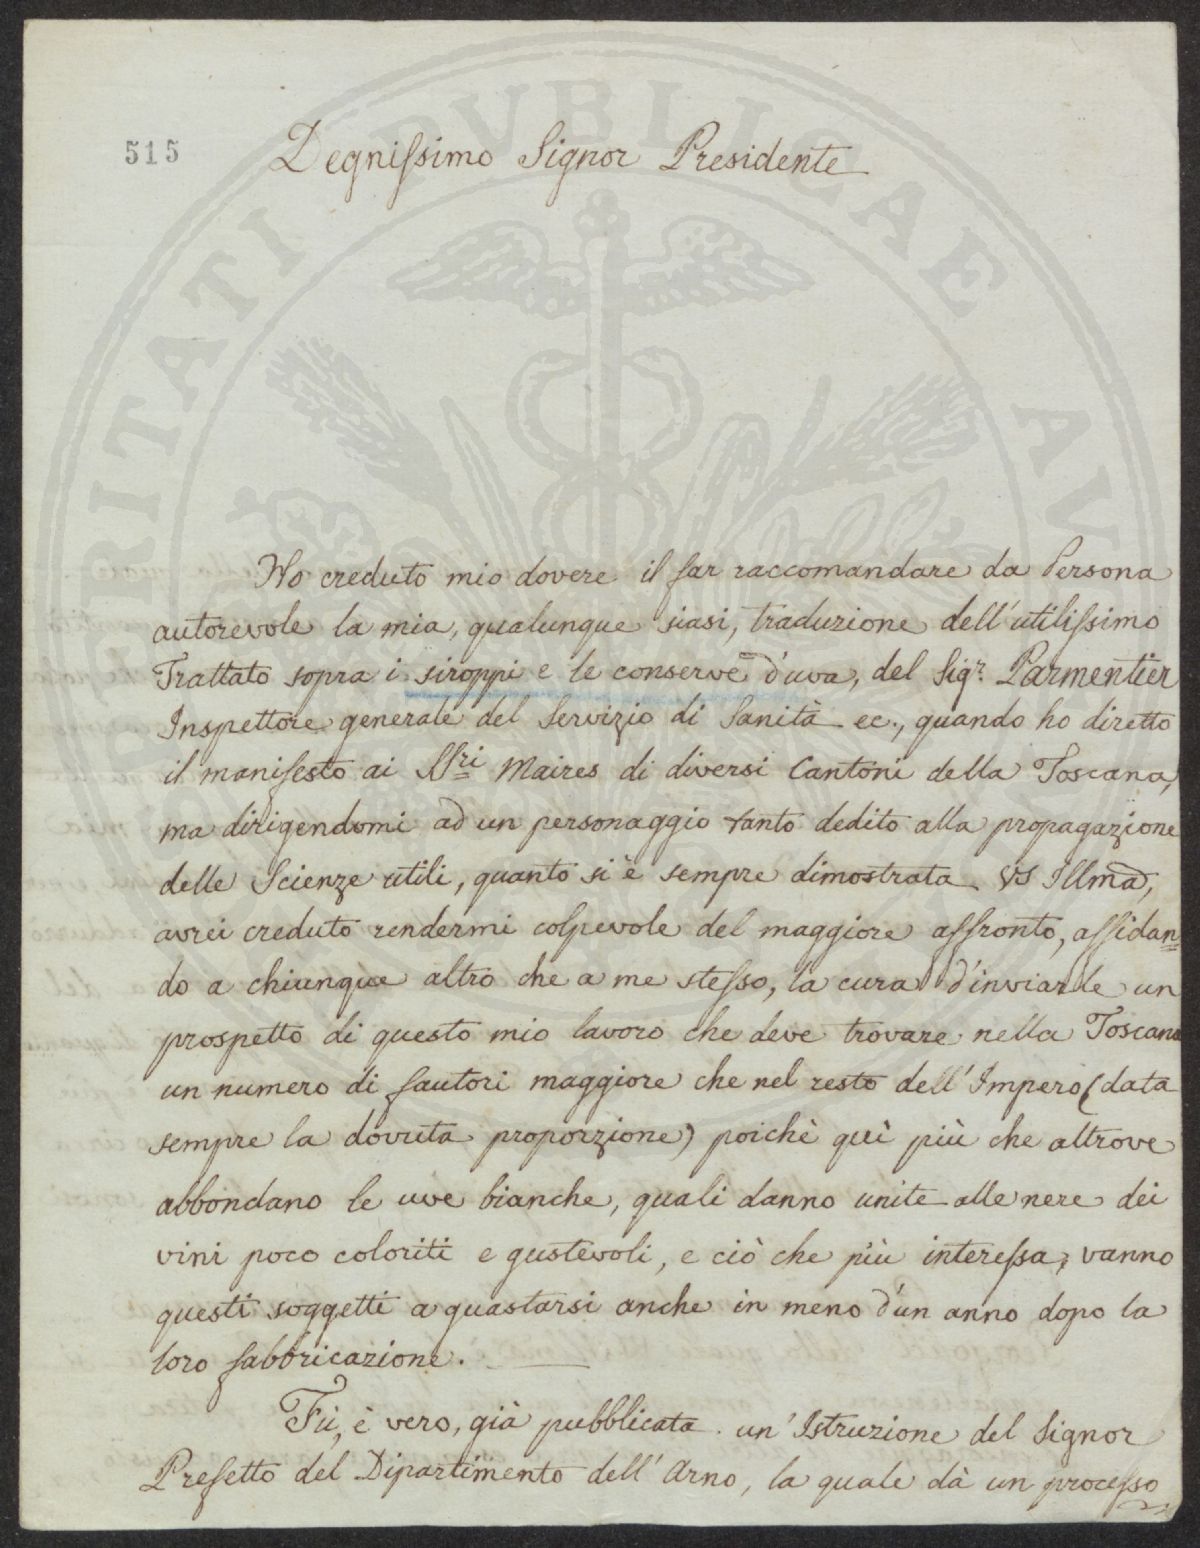 515
Degnissimo Signor Presidente
Ho creduto mio dovere il far raccomandare da Persona
autorevole la mia, qualunque siasi, traduzione dell'utilissimo
Trattato sopra i siroppi e le conserve d'uva, del Sigr. Parmentier
Inspettore generale del Servizio di Sanità ec., quando ho diretto
il manifesto ai SSri Maires di diversi Cantoni della Toscana,
ma dirigendomi ad un personaggio tanto dedito alla propagazione
delle Scienze utili, quanto si è sempre dimostrata VS Illma,
avrei creduto rendermi colpevole del maggiore affronto, affidan=
do a chiunque altro che a me stesso, la cura d'inviarle un
prospetto di questo mio lavoro che deve trovare nella Toscana
un numero di fautori maggiore che nel resto dell'Impero (data
sempre la dovuta proporzione) poichè quì più che altrove
abbondano le uve bianche, quali danno unite alle nere dei
vini poco coloriti e gustevoli, e ciò che più interessa, vanno
questi soggetti a guastarsi anche in meno d'un anno dopo la
loro fabbricazione.
Fù, è vero, già pubblicata un'Istruzione del Signor
Prefetto del Dipartimento dell'Arno, la quale dà un processo
PUBLICAE